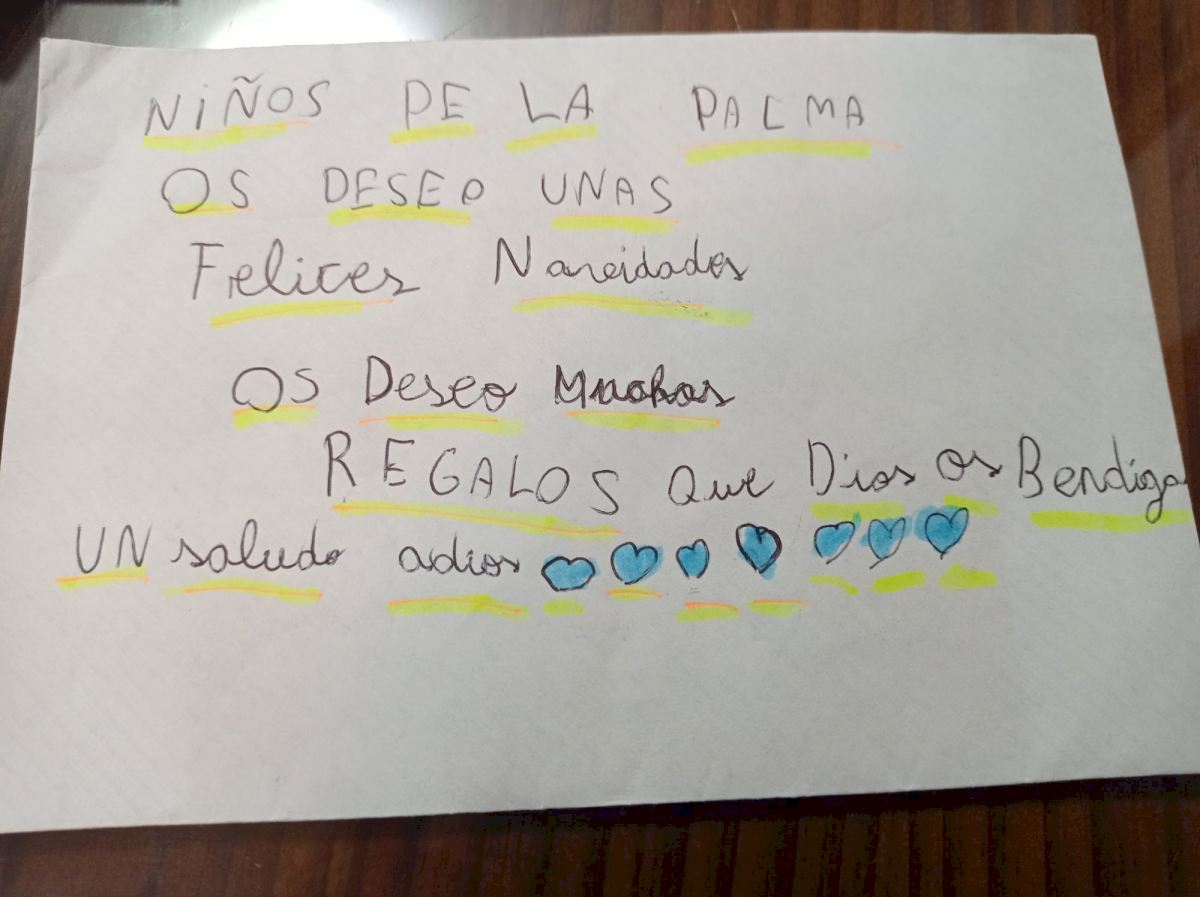 NIÑOS DE LA PALMA
OS DESEO UNAS
Felices Naveidades
OS Deseo Muchos
REGALOS Que Dios os Bendiga
UN saludo adios